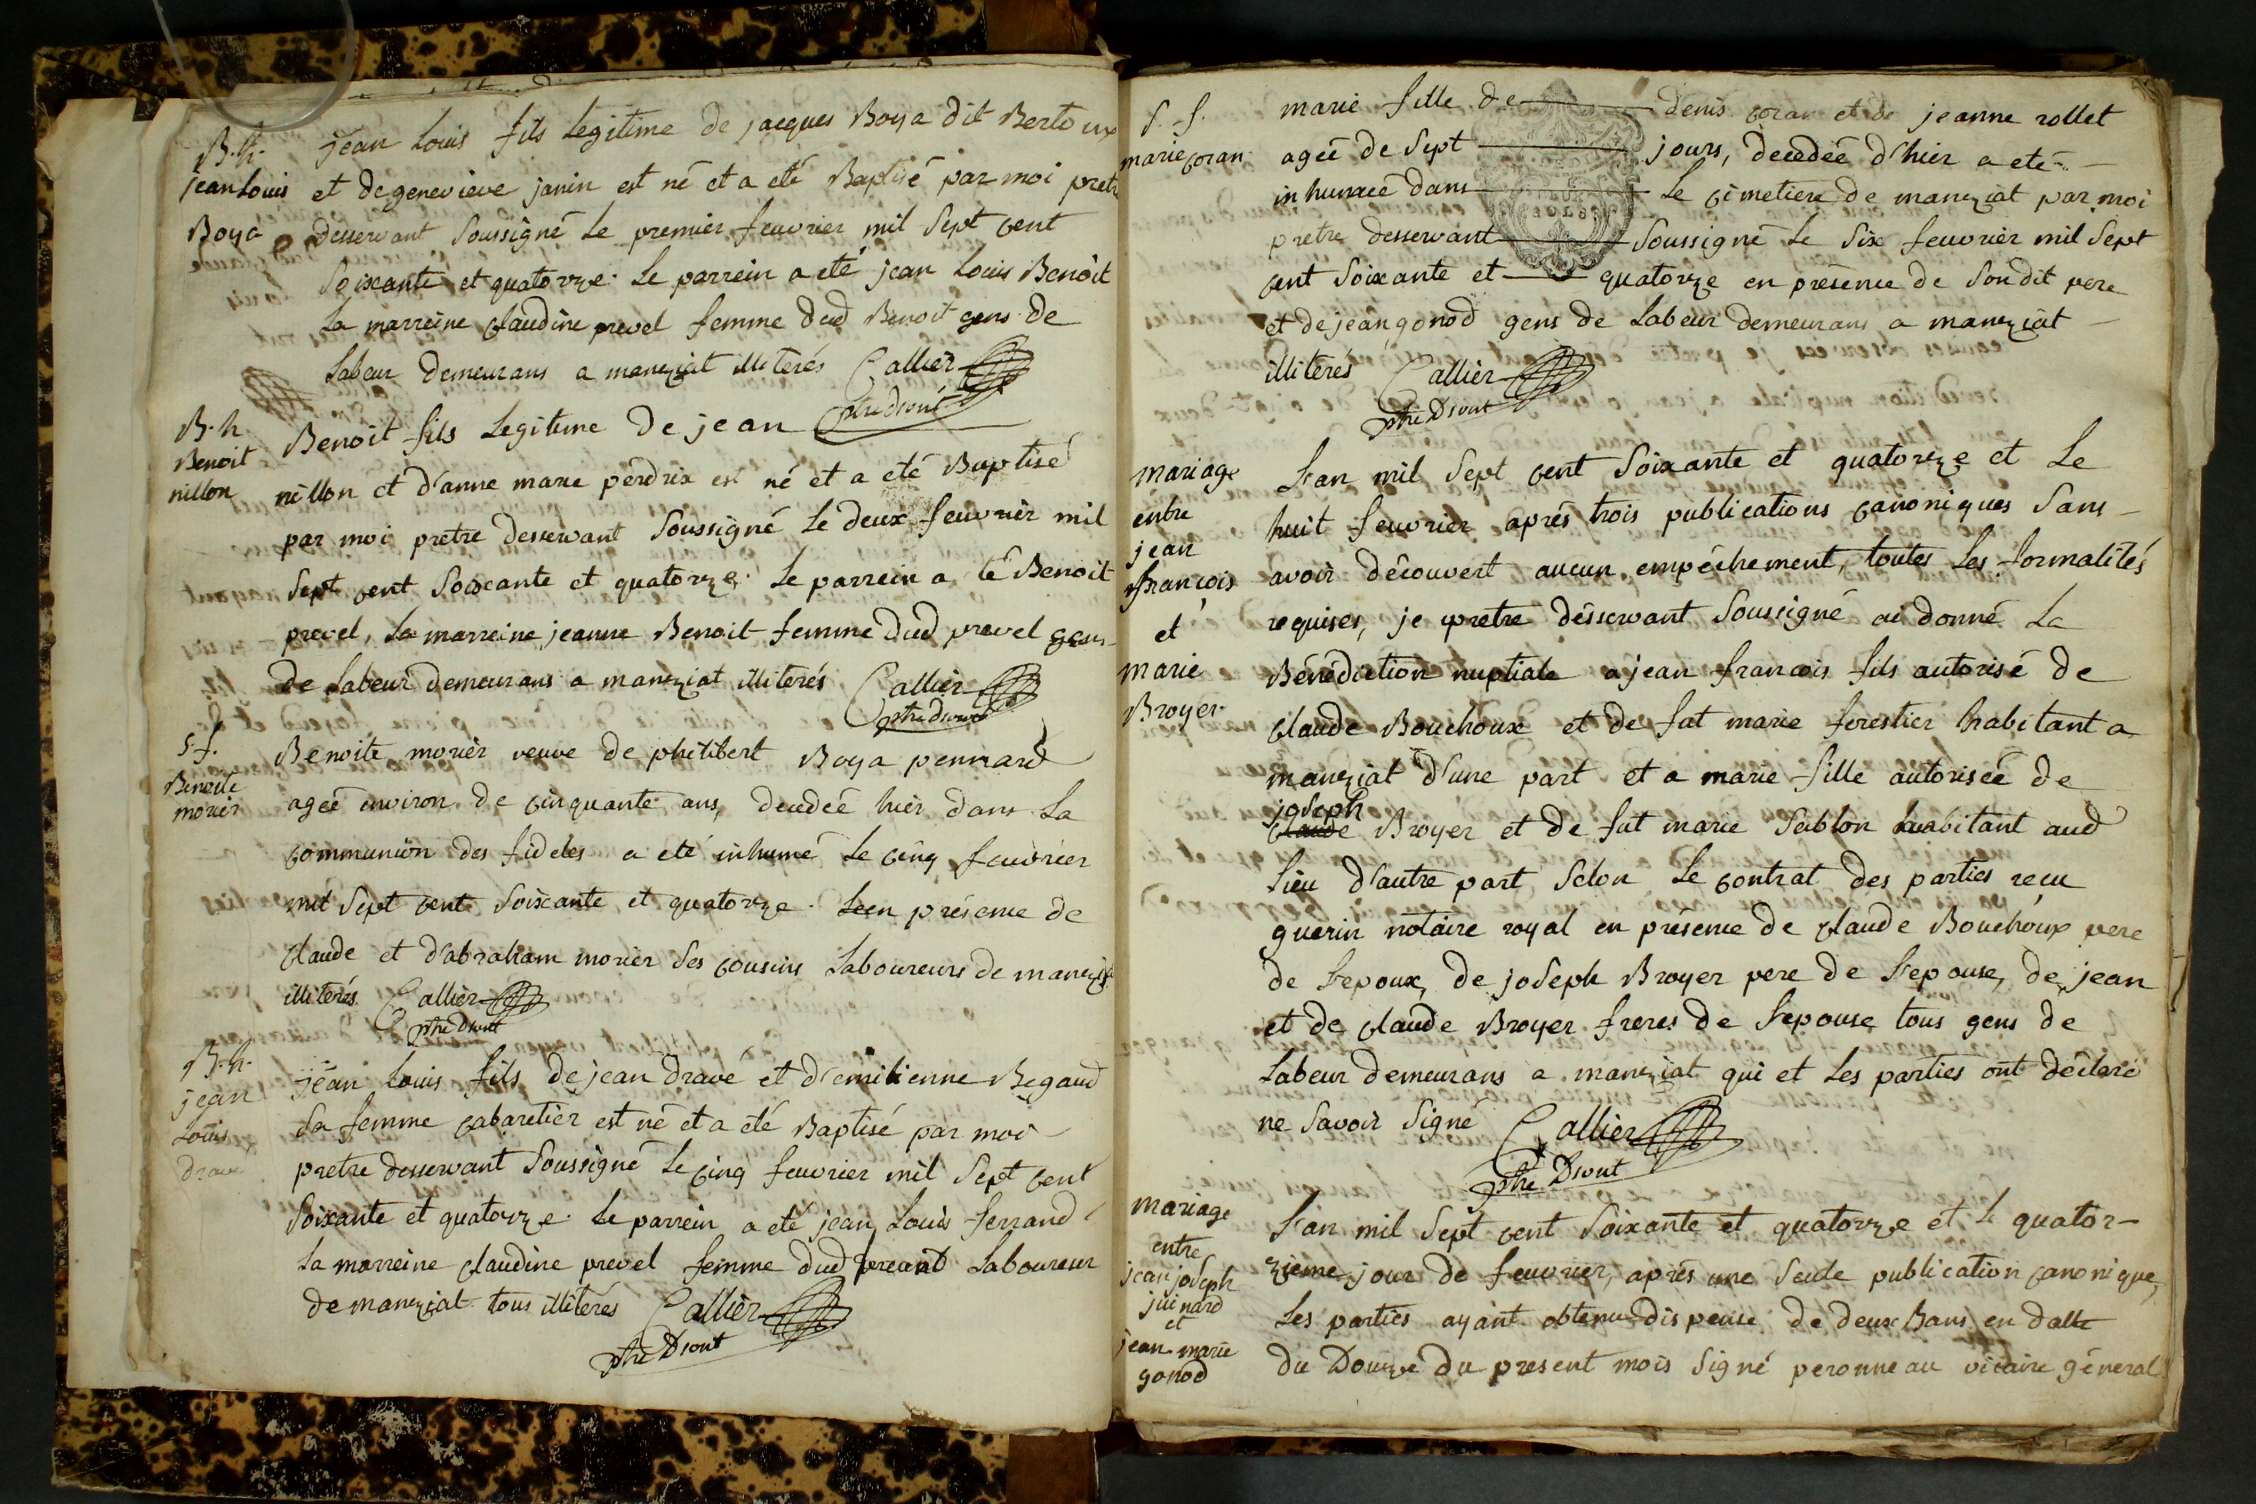 B. h.
jean Louis
Boya
jean Louis fils Legitime de jacques Boya dit Bertoux
et de genevieve janin est né et a eté Baptisé par moi pretre
desservant Soussigné Le premier feuvrier mil Sept cent
Soixante et quatorze. Le parrein a eté jean Louis Benoit
La marreine claudine prevel femme dud Benoit gens de
Labeur demeurans a maneziat illiterés Callier
ptre dsvnt
B. h
Benoit
nillon
Benoit fils Legitime de jean
nillon et d'anne marie perdrix est né et a eté Baptisé
par moi pretre desservant Soussigné Le deux feuvrier mil
Sept cent Soixante et quatorze. Le parrein a té Benoit
prevel, La marreine jeanne Benoit femme dud prevel gens
de Labeur demeurans a maneziat illiterés Callier
ptre dsvnt
s. f.
Benoite
morier
Benoite morier veuve de philibert Boya pennard
ageé environ de cinquante ans, decedeé hier dans La
communion des fideles a eté inhumé Le cinq feuvrier
mil Sept cent Soixante et quatorze. Le en présence de
claude et d'abraham morier Ses cousins Laboureurs de maneziat
illiterés Callier
ptre Dsvnt
B. h.
jean
Louis
dravé
jean Louis fils de jean dravé et d'emilienne Begaud
Sa femme cabaretier est né et a été Baptisé par moi
pretre desservant Soussigné Le cinq feuvrier mil Sept cent
Soixante et quatorze. Le parrein a eté jean Louis ferrand
La marreine claudine prevel femme dud Laboureur
de maneziat tous illitérés Callier
ptre Dsvnt
S. f.
marie coran
marie fille de denis coran et de jeanne rollet
ageé de Sept jours, decedeé d'hier a eté
inhumeé dans Le cimetiere de maneziat par moi
pretre desservant Soussigné Le Six feuvrier mil Sept
cent Soixante et quatorze en présence de Sondit pere
et de jean gonod gens de Labeur demeurans a maneziat
illiterés Callier
ptre Dsvnt
mariage
entre
jean
francois
et
marie
Broyer
L'an mil Sept cent Soixante et quatorze et Le
huit feuvrier aprés trois publications canoniques Sans
avoir découvert aucun empéchement, toutes Les formalités
requises, je pretre désservant Soussigné ai donné La
Bénédiction nuptiale a jean francois fils autorisé de
claude Bouchoux et de fut marie forestier habitant a
maneziat d'une part et a marie fille autoriseé de
joseph
claude Broyer et de fut marie Sablon habitant aud
Lieu d'autre part Selon Le contrat des parties recu
guerin notaire royal en présence de claude Bouchoux pere
de L'epoux, de joseph Broyer pere de L'epouse, de jean
et de claude Broyer freres de L'epouse tous gens de
Labeur demeurans a maneziat qui et Les parties ont déclaré
ne Savoir Signé Callier
ptre Dsvnt
mariage
entre
jean joseph
juinard
et
jean marie
gonod
L'an mil Sept cent Soixante et quatorze et Le quator-
zieme jour de feuvrier, aprés une Seule publication canonique,
Les parties ayant obtenu dispense de deux Bans en datte
du Douze du present mois Signé peronneau vicaire géneral